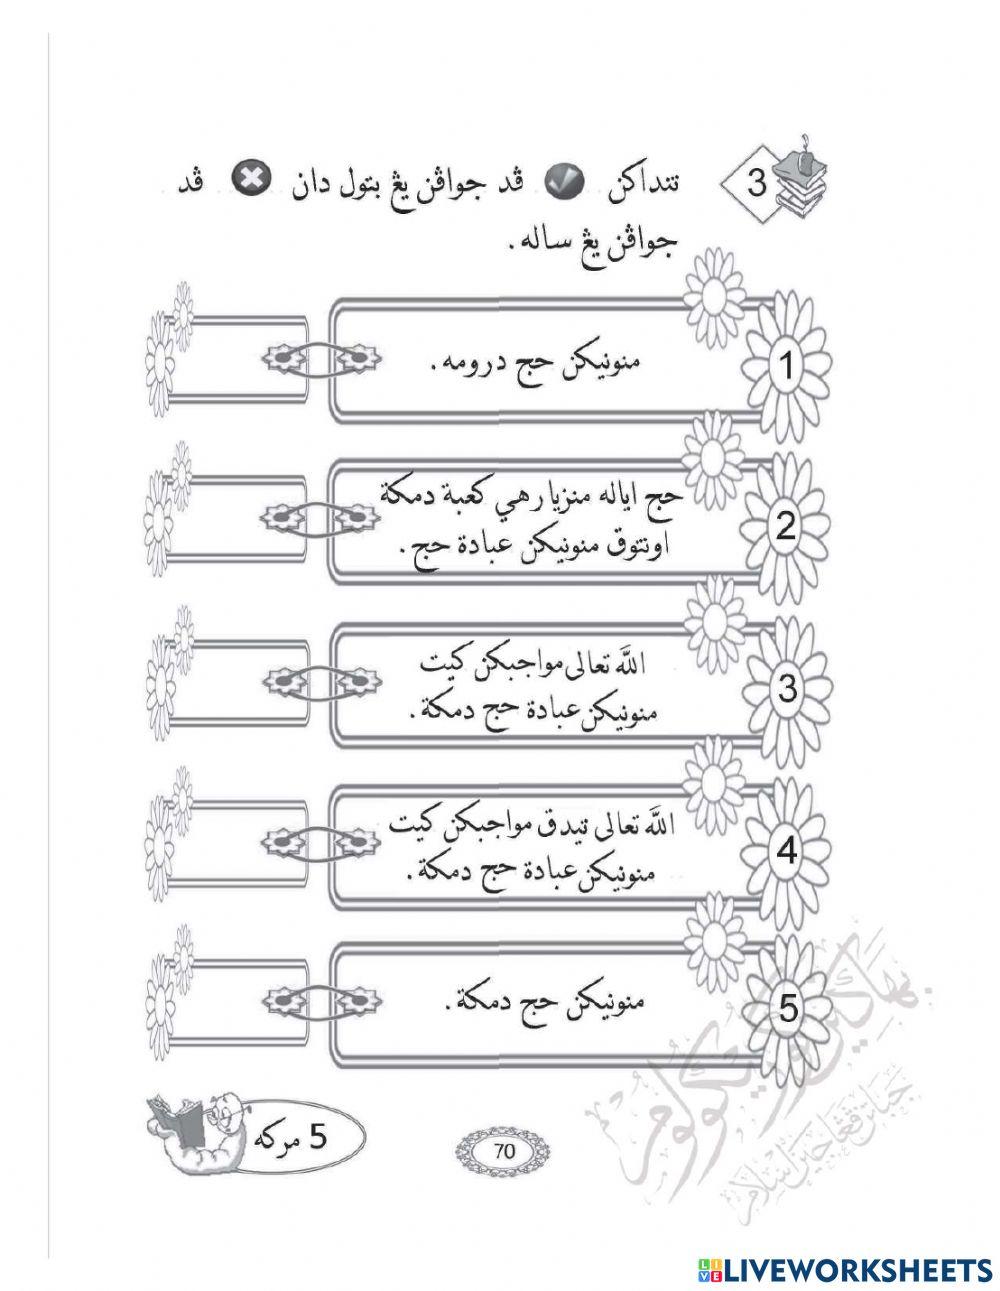 3
تنداكن ✓ ڤد جواڤن يڠ بتول دان ✗ ڤد
جواڤن يڠ ساله.
1
منونيكن حج درومه.
2
حج اياله منزيارهي كعبة دمكة
اونتوق منونيكن عبادة حج.
3
اللّٰه تعالى مواجبكن كيت
منونيكن عبادة حج دمكة.
4
اللّٰه تعالى تيدق مواجبكن كيت
منونيكن عبادة حج دمكة.
5
منونيكن حج دمكة.
5 مركه
70
LIVEWORKSHEETS